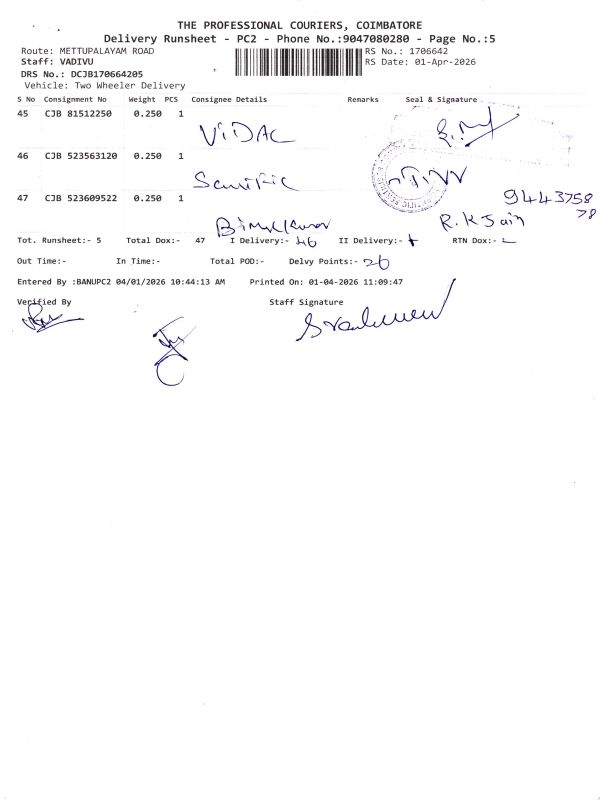 THE PROFESSIONAL COURIERS, COIMBATORE
Delivery Runsheet - PC2 - Phone No.:9047080280 - Page No.:5
Route: METTUPALAYAM ROAD
RS No.: 1706642
Staff: VADIVU
RS Date: 01-Apr-2026
DRS No.: DCJB170664205
Vehicle: Two Wheeler Delivery
S No Consignment No Weight PCS Consignee Details Remarks Seal & Signature
45 CJB 81512250 0.250 1
ViDAC
46 CJB 523563120 0.250 1
47 CJB 523609522 0.250 1
9443758
78
R.K Jain
Tot. Runsheet:- 5 Total Dox:- 47 I Delivery:- 46 II Delivery:- RTN Dox:-
Out Time:- In Time:- Total POD:- Delvy Points:- 26
Entered By :BANUPC2 04/01/2026 10:44:13 AM Printed On: 01-04-2026 11:09:47
Verified By Staff Signature